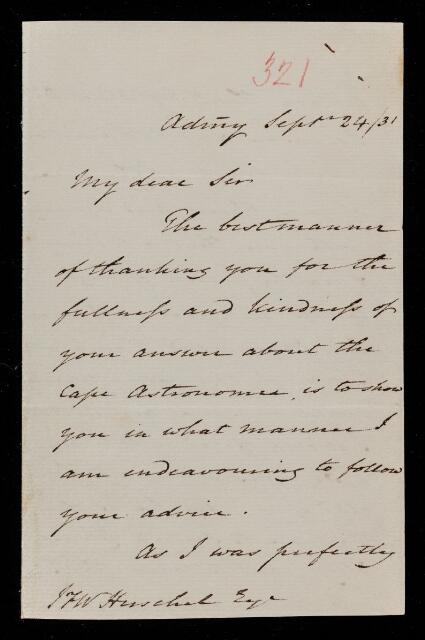 321
Admy Septr 24/31
My dear Sir
The best manner
of thanking you for the
fullness and kindness of
your answer about the
Cape Astronomer, is to show
you in what manner I
am endeavouring to follow
your advice.
As I was perfectly
JFW Herschel Esqe